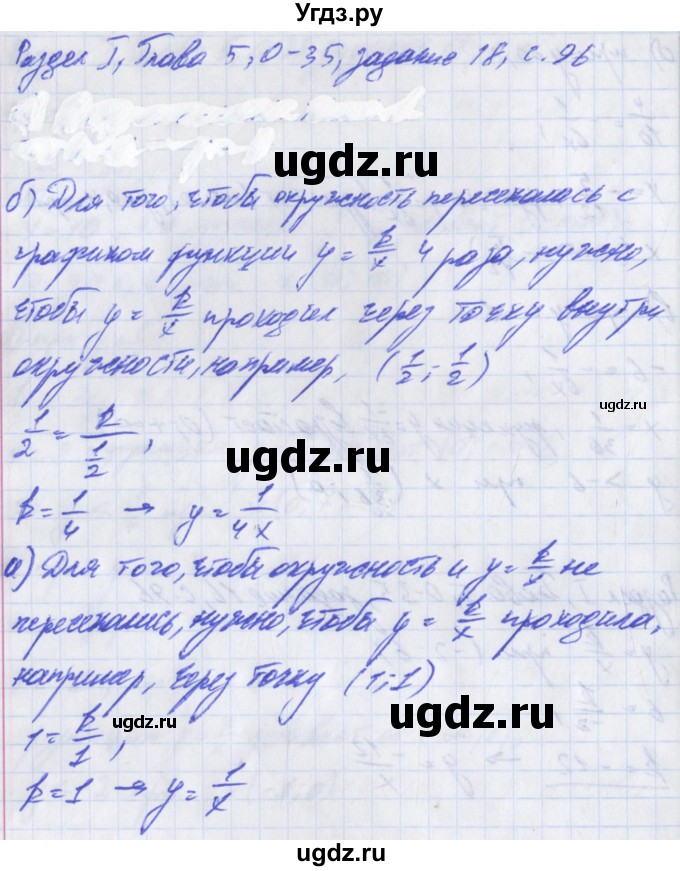 Угдз.ру
Раздел I, Глава 5, О-35, задание 18, с. 96
ugdz.ru
б) Для того, чтобы окружность пересекалась с
графиком функции y = k/x 4 раза, нужно,
чтобы y = k/x проходил через точку внутри
окружности, например, (1/2; 1/2)
1/2 = k/(1/2),
ugdz.ru
k = 1/4 → y = 1/4x
а) Для того, чтобы окружность и y = k/x не
пересекались, нужно, чтобы y = k/x проходила,
например, через точку (1; 1)
ugdz.ru
ugdz.ru
1 = k/1,
k = 1 → y = 1/x
ugdz.ru